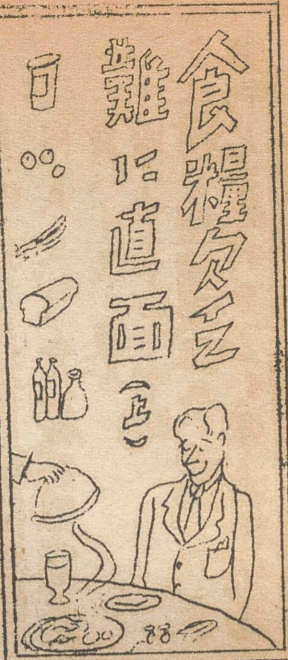 食糧欠乏
難に直面
(上)